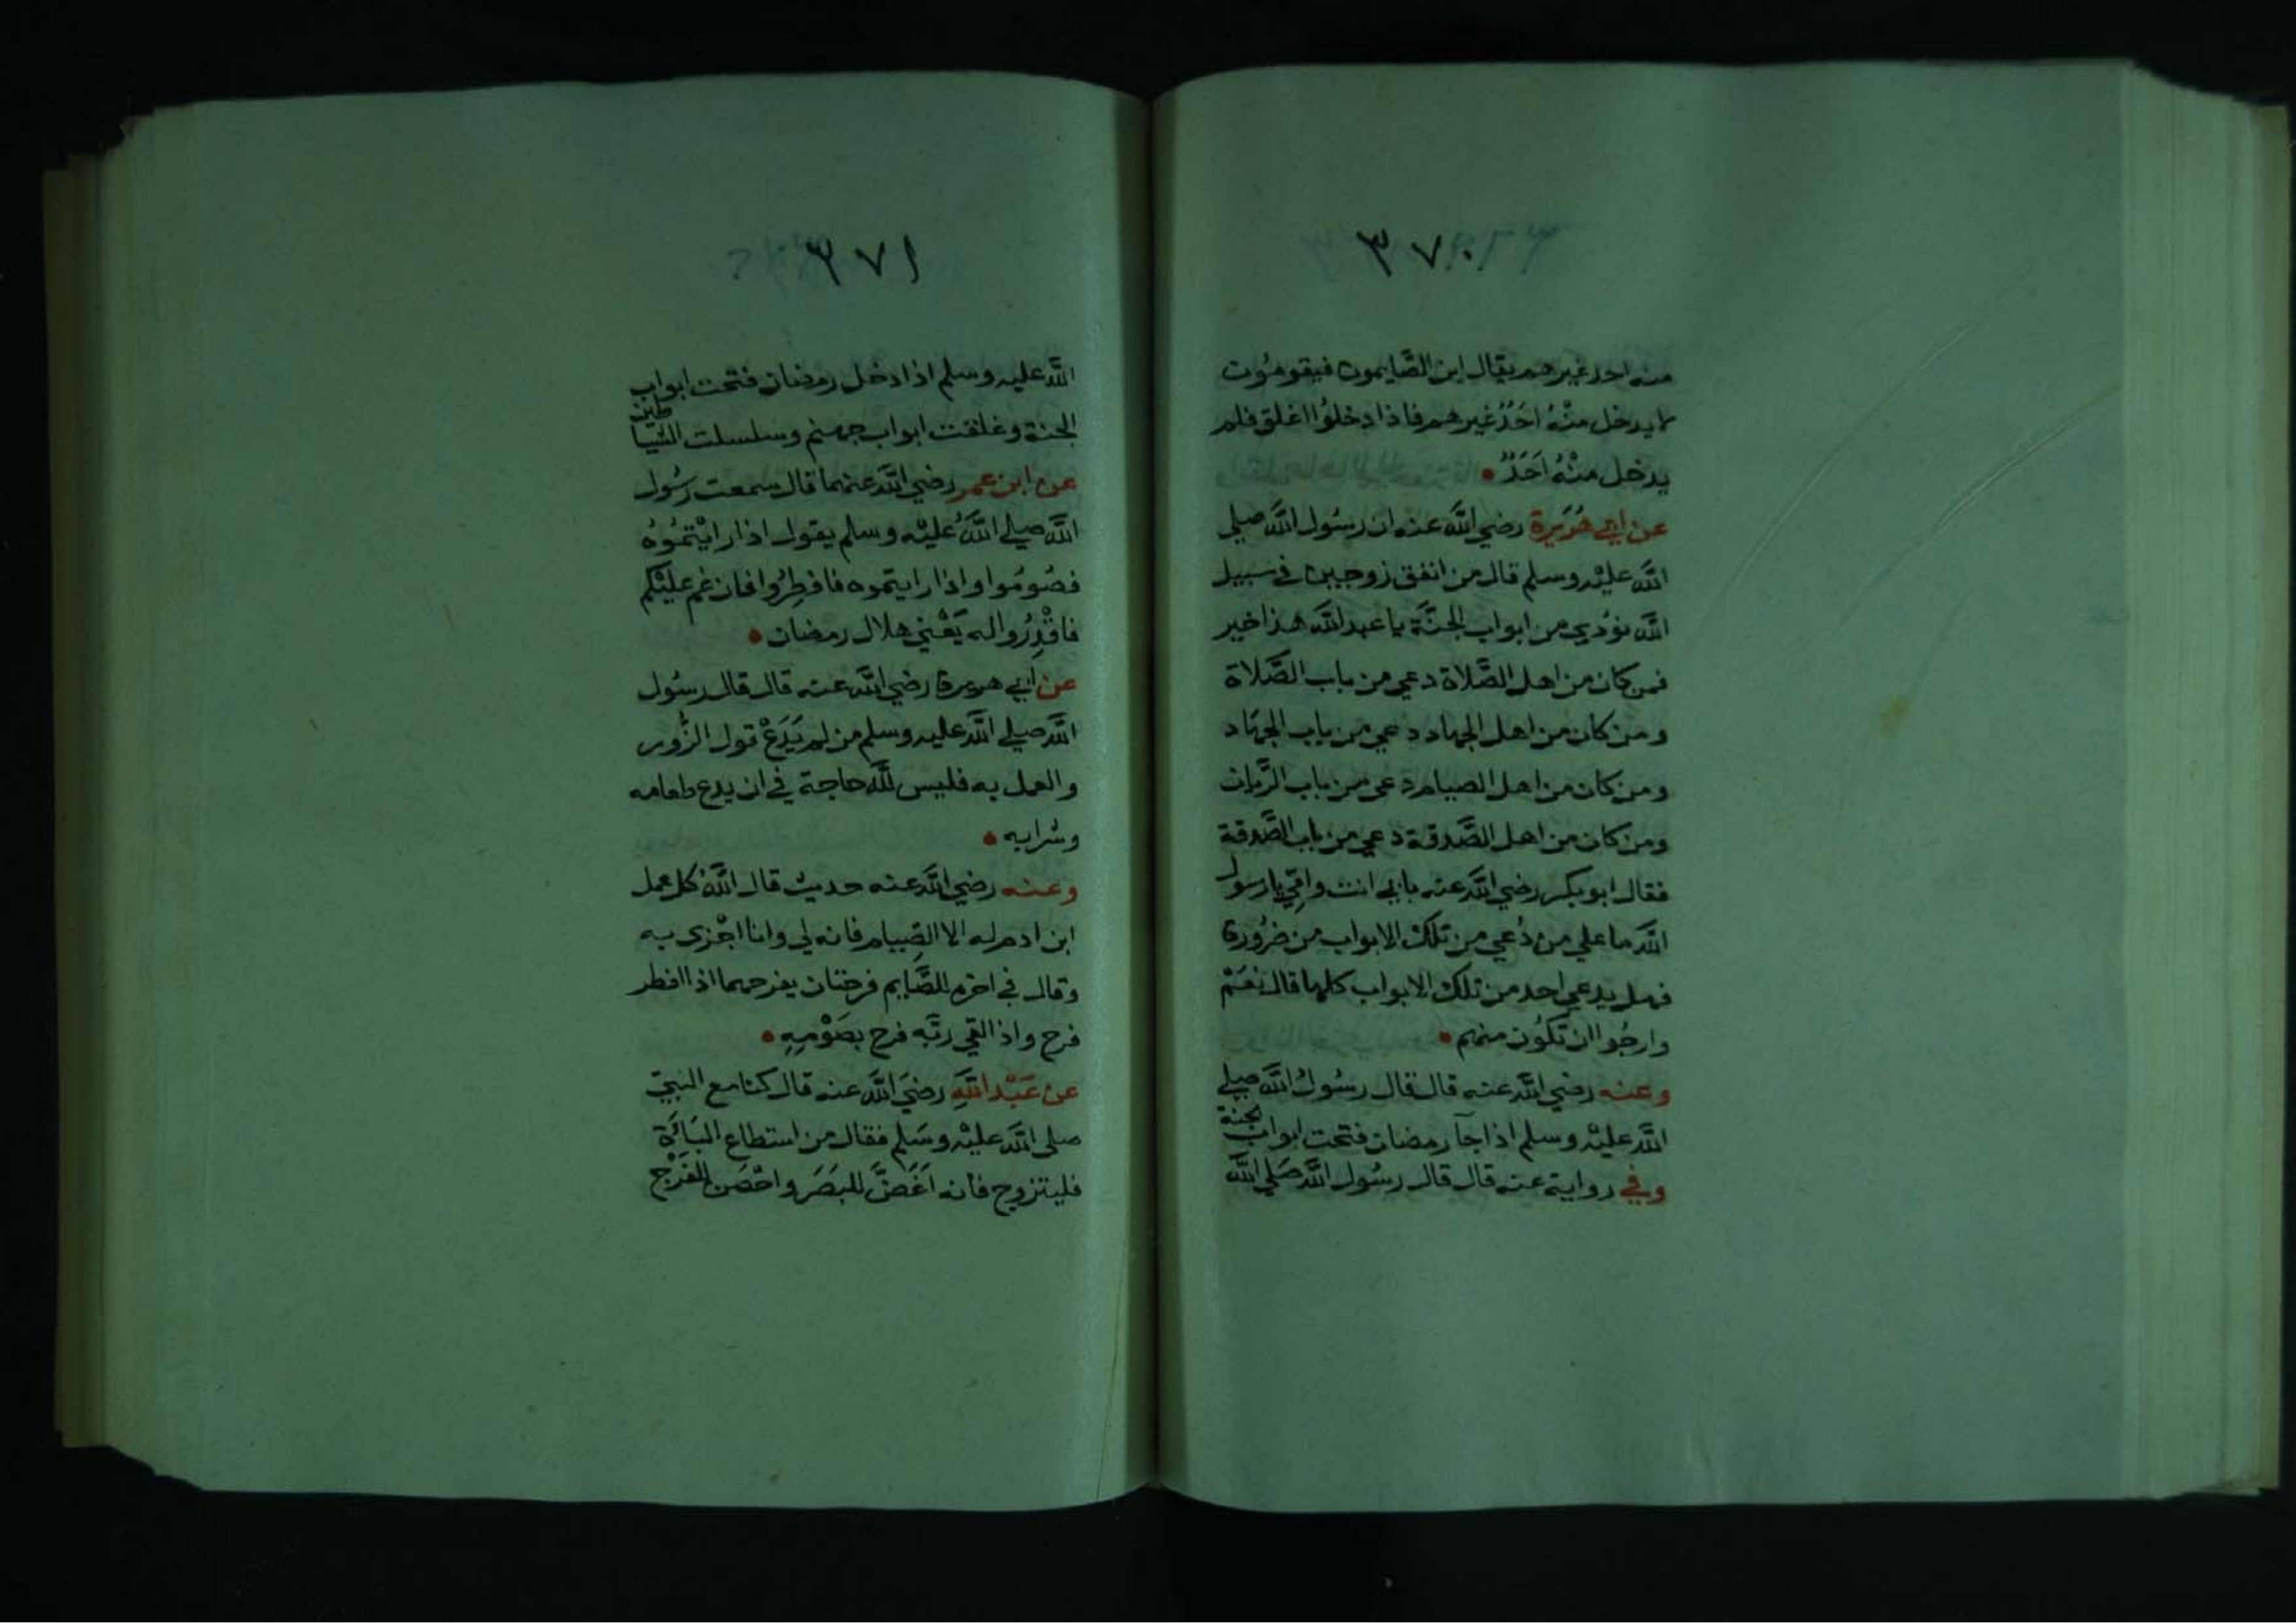 ٣٧٠
منه احد غيرهم يقال اين الصَّايمون فيقومُون
لا يدخل منْهُ احَدٌ غيرهم فاذا دخلوُا اغلق فلم
يدخل منْهُ اَحَدٌ
عن ابي هُرَيرة رضي اللَّه عنه ان رسُول اللَّه صلي
اللَّه عليْه وسلم قال من انفق زوجين في سبيل
اللَّه نوُدي من ابواب الجنَّة يا عبد اللَّه هذا خير
فمن كان من اهل الصَّلاة دعي من باب الصَّلاة
ومن كان من اهل الجهاد دعي من باب الجهَاد
ومن كان من اهل الصيام دعي من باب الرَّيان
ومن كان من اهل الصَّدقة دعي من باب الصَّدقة
فقال ابو بكر رضي اللَّه عنه بابي انت وامِّي يا رسول
اللَّه ما علي من دُعي من تلك الابواب من ضرُورة
فهل يدعي احد من تلك الابواب كلها قال نعَمْ
وارجُوا ان تكوُن منهم
وعنه رضي اللَّه عنه قال قال رسُولُ اللَّه صلي
اللَّه عليْه وسلم اذا جآ رمضان فتحت ابواب الجنة
وفي رواية عنه قال قال رسُول اللَّه صَلي اللَّه
٣٧١
اللَّه عليه وسلم اذا دخل رمضان فتحت ابواب
الجنة وغلقت ابواب جهنم وسلسلت الشياطين
عن ابن عمر رضي اللَّه عنهما قال سمعت رسُول
اللَّه صلي اللَّهُ عليْه وسلم يقول اذا رايْتمُوُهُ
فصُومُوا واذا رايتموه فافطِرُوا فان غم عليْكم
فاقْدِرُوا له يَعْني هلال رمضان
عن ابي هريرة رضي اللَّه عنه قال قال رسُول
اللَّه صلي اللَّه عليه وسلم من لم يَدَعْ قول الزُّور
والعمل به فليس للَّه حاجة في ان يدع طعامه
وشرابه
وعنه رضي اللَّه عنه حديث قال اللَّهُ كل عمل
ابن ادم له الا الصِيام فانه لي وانا اجْزي به
وقال في اخره للصَّايم فرحتان يفرحهما اذا افطر
فرح واذا لقي ربَّه فرح بصَوْمِهِ
عن عَبْد اللَّهِ رضيَ اللَّه عنه قال كنا مع النبيّ
صلى اللَّه عليْه وسَلم فقال من استطاع البَاءَة
فليتزوج فانه اَغَضُّ للبصَر واحْصَن للفَرْج